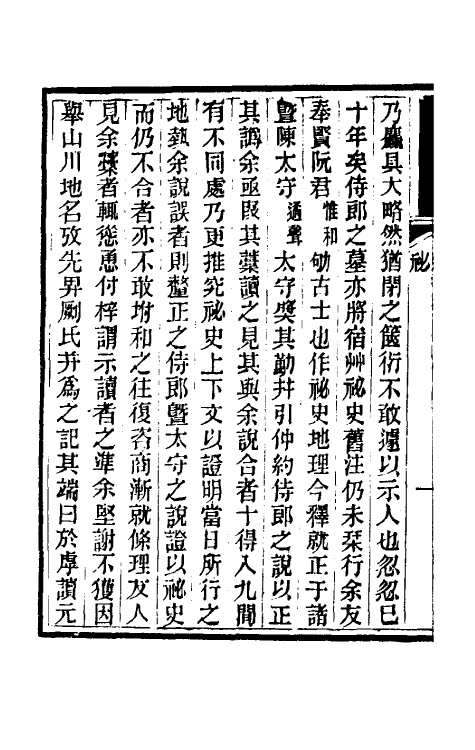 乃麤具大略然猶閉之篋衍不敢遽以示人也忽忽已
十年矣侍郎之墓亦將宿艸祕史舊注仍未栞行余友
奉賢阮君惟和劬古士也作祕史地理今釋就正于諸
暨陳太守遹聲太守奬其勤幷引仲約侍郎之說以正
其譌余亟叚其藁讀之見其與余說合者十得八九閒
有不同處乃更推究祕史上下文以證明當日所行之
地埶余說誤者則釐正之侍郎暨太守之說證以祕史
而仍不合者亦不敢坿和之往復咨商漸就條理友人
見余藁者輒慫恿付梓謂示讀者之準余堅謝不獲因
舉山川地名攷先畀劂氏幷爲之記其端曰於虖讀元
祕
一